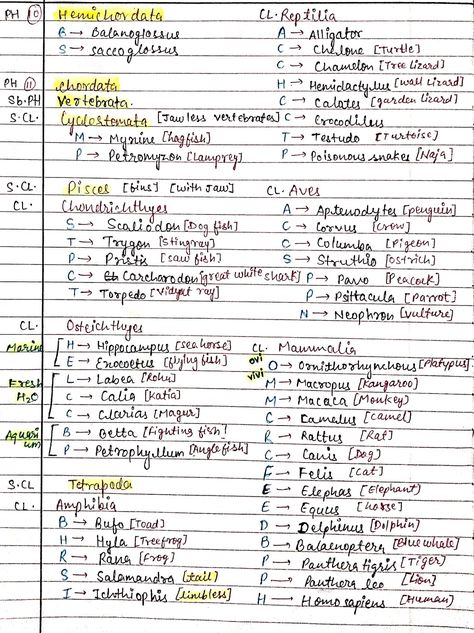 PH 10 Hemichordata
B → Balanoglossus
S → saccoglossus
PH 11 chordata
Sb.PH Vertebrata
S.CL. Cyclostomata [Jawless vertebrates]
M → Myxine [hagfish]
P → Petromyzon [Lamprey]
S.CL. Pisces [bins] [with Jaw]
CL. Chondrichthyes
S → Scaliodon [Dog fish]
T → Trygon [Stingray]
P → Pristis [saw fish]
C → Carcharodon [great white shark]
T → Torpedo [Vidyut ray]
CL. Osteichthyes
Marine H → Hippocampus [sea horse]
E → Exocoetus [flying fish]
Fresh H2O L → Labea [Rohu]
C → Calia [Katla]
C → Clarias [Magur]
Aquarium B → Betta [Fighting fish]
P → Petrophyllum [Angle fish]
S.CL Tetrapoda
CL. Amphibia
B → Bufo [Toad]
H → Hyla [Treefrog]
R → Rana [Frog]
S → Salamandra [tail]
I → Ichthiophis [limbless]
CL. Reptilia
A → Alligator
C → Chelone [Turtle]
C → Chamelon [Tree lizard]
H → Hemidactylus [wall lizard]
C → Calotes [garden lizard]
C → Crocodilus
T → Testudo [Turtoise]
P → Poisonous snakes [Naja]
CL. Aves
A → Aptenodytes [penguin]
C → Corvus [Crow]
C → Columba [Pigeon]
S → Struthio [ostrich]
P → Pavo [Peacock]
P → Psittacula [Parrot]
N → Neophron [vulture]
CL. Mammalia
ovi O → Ornithorhynchous [Platypus]
vivi M → Macropus [Kangaroo]
M → Macaca [Monkey]
C → Camelus [Camel]
R → Rattus [Rat]
C → Canis [Dog]
F → Felis [Cat]
E → Elephas [Elephant]
E → Equus [horse]
D → Delphinus [Dolphin]
B → Balaenoptera [Blue whale]
P → Panthera tigris [Tiger]
P → Panthera leo [Lion]
H → Homo sapiens [Human]